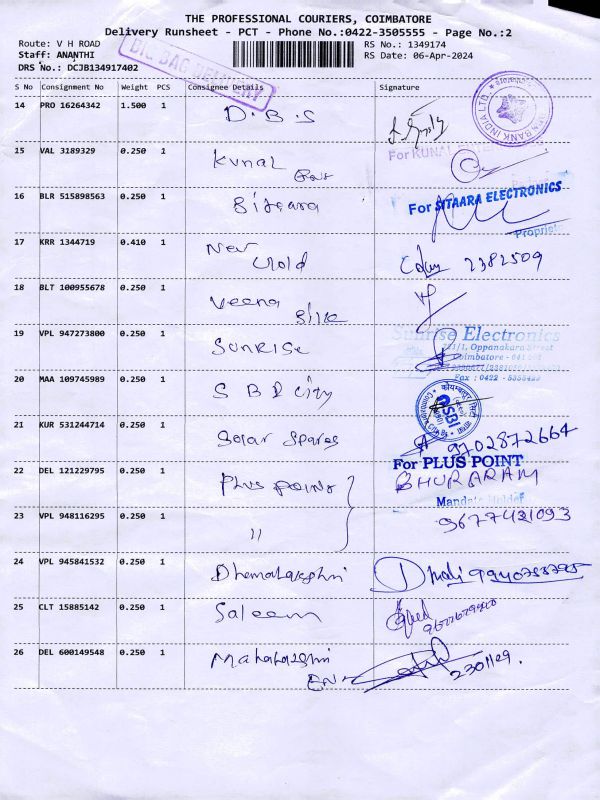 THE PROFESSIONAL COURIERS, COIMBATORE
Delivery Runsheet - PCT - Phone No.:0422-3505555 - Page No.:2
Route: V H ROAD RS No.: 1349174
Staff: ANANTHI RS Date: 06-Apr-2024
DRS No.: DCJB134917402
BIG BAG DELIVERY
S No Consignment No Weight PCS Consignee Details Signature
14 PRO 16264342 1.500 1 D.B.S
BANK INDIA LTD.
For KUNAL
15 VAL 3189329 0.250 1 Kunal
16 BLR 515898563 0.250 1 Sitaara
For SITAARA ELECTRONICS
Proprietor
17 KRR 1344719 0.410 1 New Gold 2382509
18 BLT 100955678 0.250 1 Veena Silk
19 VPL 947273800 0.250 1 SUNRISE
Sunrise Electronics
Oppanakara Street
Coimbatore - 641 001
Fax : 0422 -
20 MAA 109745989 0.250 1 S B I City
SBI
21 KUR 531244714 0.250 1 Solar Spares 9702872664
22 DEL 121229795 0.250 1 Plus point
For PLUS POINT
BHURARAM
23 VPL 948116295 0.250 1 "
9677421093
24 VPL 945841532 0.250 1 Dhanalakshmi
25 CLT 15885142 0.250 1 Saleem
26 DEL 600149548 0.250 1 Mahalakshmi
2301129.